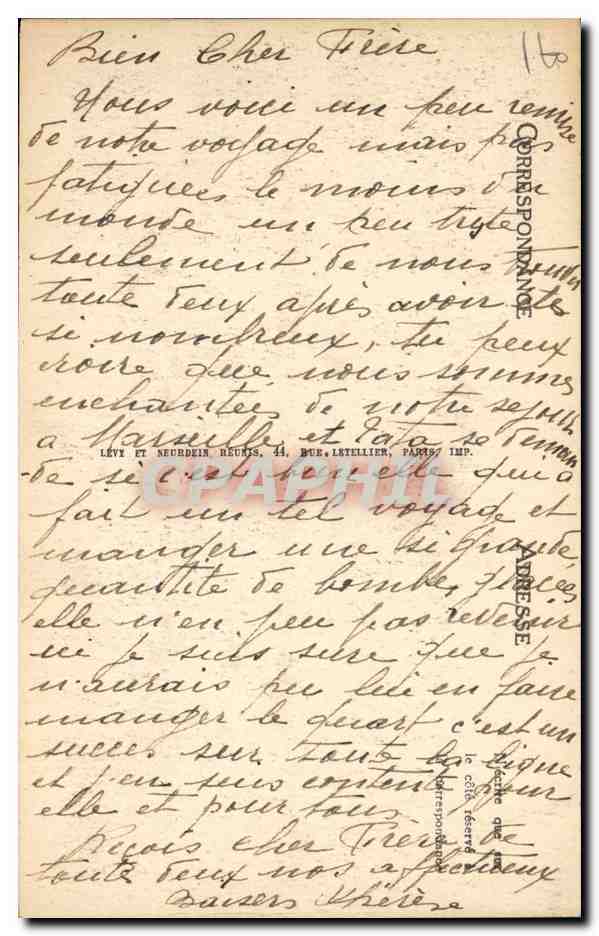 Bien Cher Frère
Nous voici un peu remise
de notre voyage mais pas
fatiguées le moins du
monde un peu triste
seulement de nous trouver
toute deux après avoir étés
si nombreux, tu peux
croire que nous sommes
enchantées de notre séjour
à Marseille et Tata se deman
-de si c'est bien elle qui a
fait un tel voyage et
manger une si grande
quantité de bombe glacées
elle n'en peu pas revenir
ni je suis sure que je
n'aurais pu lui en faire
manger le quart c'est un
succès sur toute la ligne
et j'en suis contente pour
elle et pour tous
Reçois cher Frère de
toute deux nos affectueux
Baisers Thérèse
CORRESPONDANCE
ADRESSE
LEVY ET NEURDEIN RÉUNIS, 44, RUE LETELLIER, PARIS, IMP.
N'écrire que sur
le côté réservé à
Correspondance
CPAPHIL